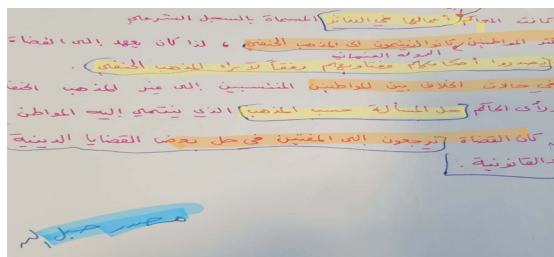 كانت المحاكم أعمالها في الدفاتر المسماة بالسجل الشرعي
المواطنين كانوا ينتمون الى المذهب الحنفي ، لذا كان يعهد إلى القضاة
الدولة العثمانية
ليصدروا أحكامهم وفتاويهم وفقاً لآراء المذهب الحنفي
في حالات الخلاف بين المواطنين المنتسبين إلى غير المذهب
الحاكم حل المسألة حسب المذهب الذي ينتمي إليه المواطن
كان القضاة يرجعون إلى المفتين في حل بعض القضايا الدينية
والقانونية .
مصدر